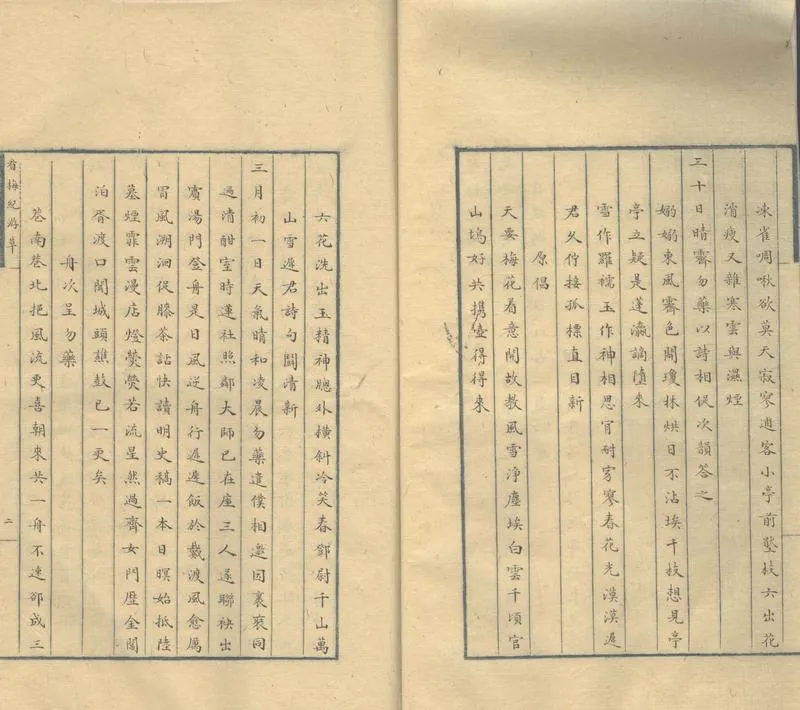 凍雀啁啾欲莫天寂寥逋客小亭前墜枝六出花
消瘦又雜寒雲與濕煙
三十日晴霽勿藥以詩相促次韻答之
嫋嫋東風霽色開瓊林烘日不沾埃千枝想見亭
亭立疑是蓬瀛謫墮來
雪作羅襦玉作神相思宵耐寒春花光漠漠遲
君久佇接孤標直目新
原倡
天要梅花着意開故教風雪浄塵埃白雲千頃官
山塢好共携壺得得來
六花洗出玉精神牕外橫斜冷笑春鄧尉千山萬
山雪遲君詩句鬬清新
三月初一日天氣晴和凌晨勿藥遣僕相邀因裹裘同
過清酣室時蓮社照鄰大師已在座三人遂聯袂出
賓湯門登舟是日風逆舟行遲遲飯於戴渡風愈厲
冒風溯洄促膝茶話快讀明史稿一本日暝始抵陸
墓煙霏雲漫店燈熒熒若流星然過齊女門歷金閶
泊胥渡口聞城頭譙鼓已一更矣
舟次呈勿藥
巷南巷北挹風流更喜朝來共一舟不速卻成三
看梅紀游草
二